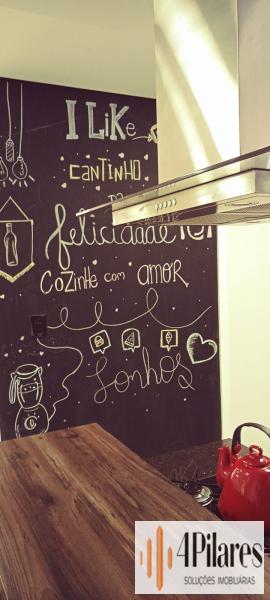 I LiKe
CANTiNHO
DA
felicidade
COZiNHe com AMOR
Sonhos
4Pilares
SOLUÇÕES IMOBILIÁRIAS